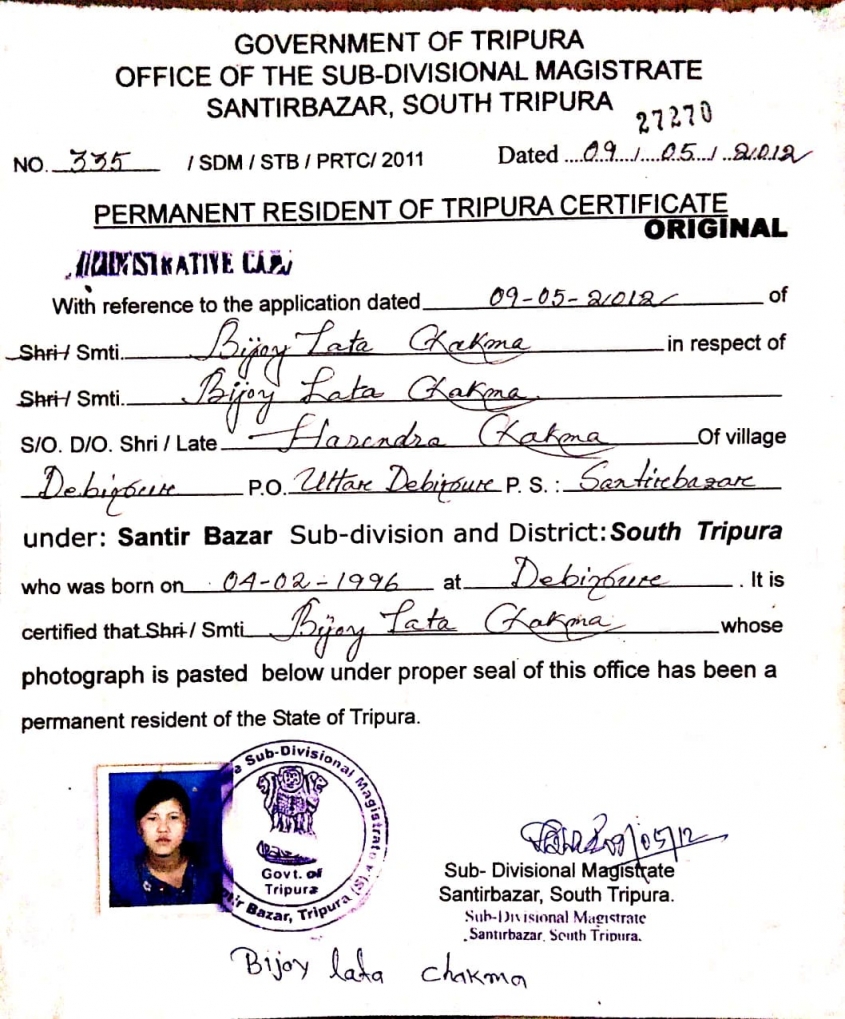 GOVERNMENT OF TRIPURA
OFFICE OF THE SUB-DIVISIONAL MAGISTRATE
SANTIRBAZAR, SOUTH TRIPURA
27270
NO. 335 / SDM / STB / PRTC/ 2011 Dated ....09../....05../..2012
PERMANENT RESIDENT OF TRIPURA CERTIFICATE
ORIGINAL
With reference to the application dated 09-05-2012 of
Shri / Smti. Bijoy Lata Chakma in respect of
Shri / Smti. Bijoy Lata Chakma.
S/O. D/O. Shri / Late Harendra Chakma Of village
Debipure P.O. Uttare Debipure P. S. : Santirebazare
under: Santir Bazar Sub-division and District: South Tripura
who was born on 04-02-1996 at Debipure . It is
certified that Shri / Smti. Bijoy Lata Chakma whose
photograph is pasted below under proper seal of this office has been a
permanent resident of the State of Tripura.
Sub-Divisional Magistrate
Govt. of
Tripura
Bazar, Tripura (S)
05/12
Sub- Divisional Magistrate
Santirbazar, South Tripura.
Sub-Divisional Magistrate
Santirbazar, South Tripura.
Bijoy lata chakma